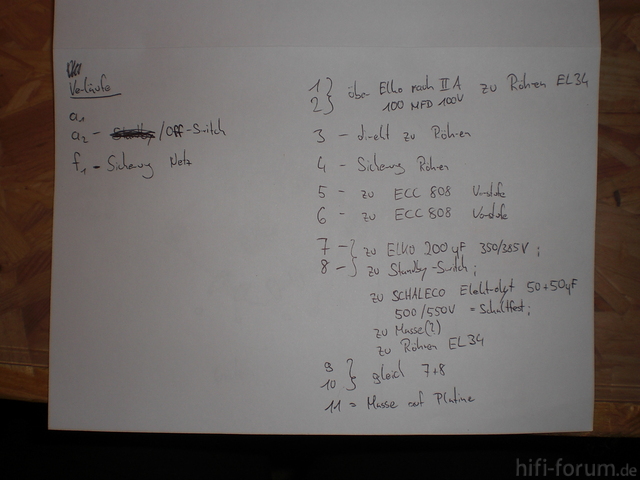 Verläufe
a1
a2 - /Off-Switch
f1 - Sicherung Netz
1 } über Elko nach II A zu Röhren EL34
2 } 100 MFD 100V
3 - direkt zu Röhren
4 - Sicherung Röhren
5 - zu ECC 808 Vorstufe
6 - zu ECC 808 Vorstufe
7 - } zu ELKO 200 µF 350/385V ;
8 - } zu Standby-Switch ;
zu SCHALECO Elektrolyt 50+50µF
500/550V = Schaltfest ;
zu Masse(?)
zu Röhren EL34
9 } gleich 7+8
10 }
11 = Masse auf Platine
hifi-forum.de